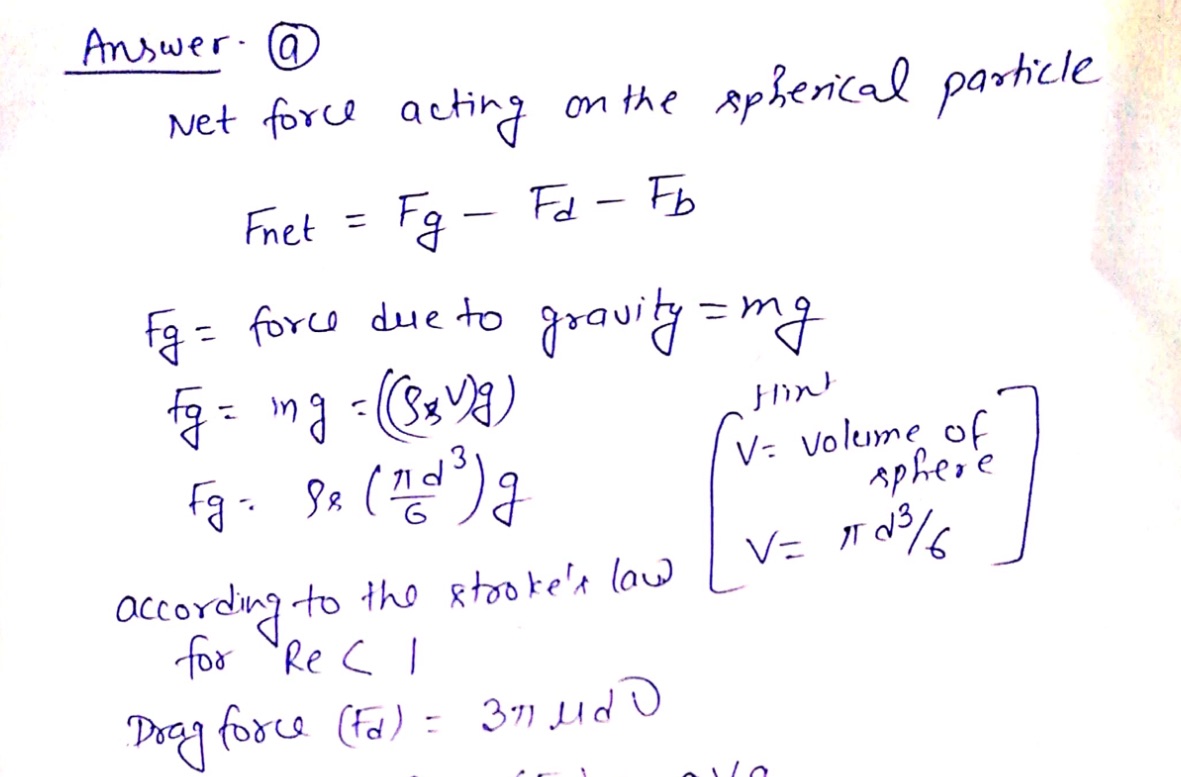 Answer. (a)
Net force acting on the spherical particle
Fnet = Fg - Fd - Fb
Fg = force due to gravity = mg
Fg = mg = ((ρs V)g)
Hint
V = volume of
sphere
Fg = ρs (πd³/6) g
V = πd³/6
according to the stroke's law
for Re < 1
Drag force (Fd) = 3πμdυ